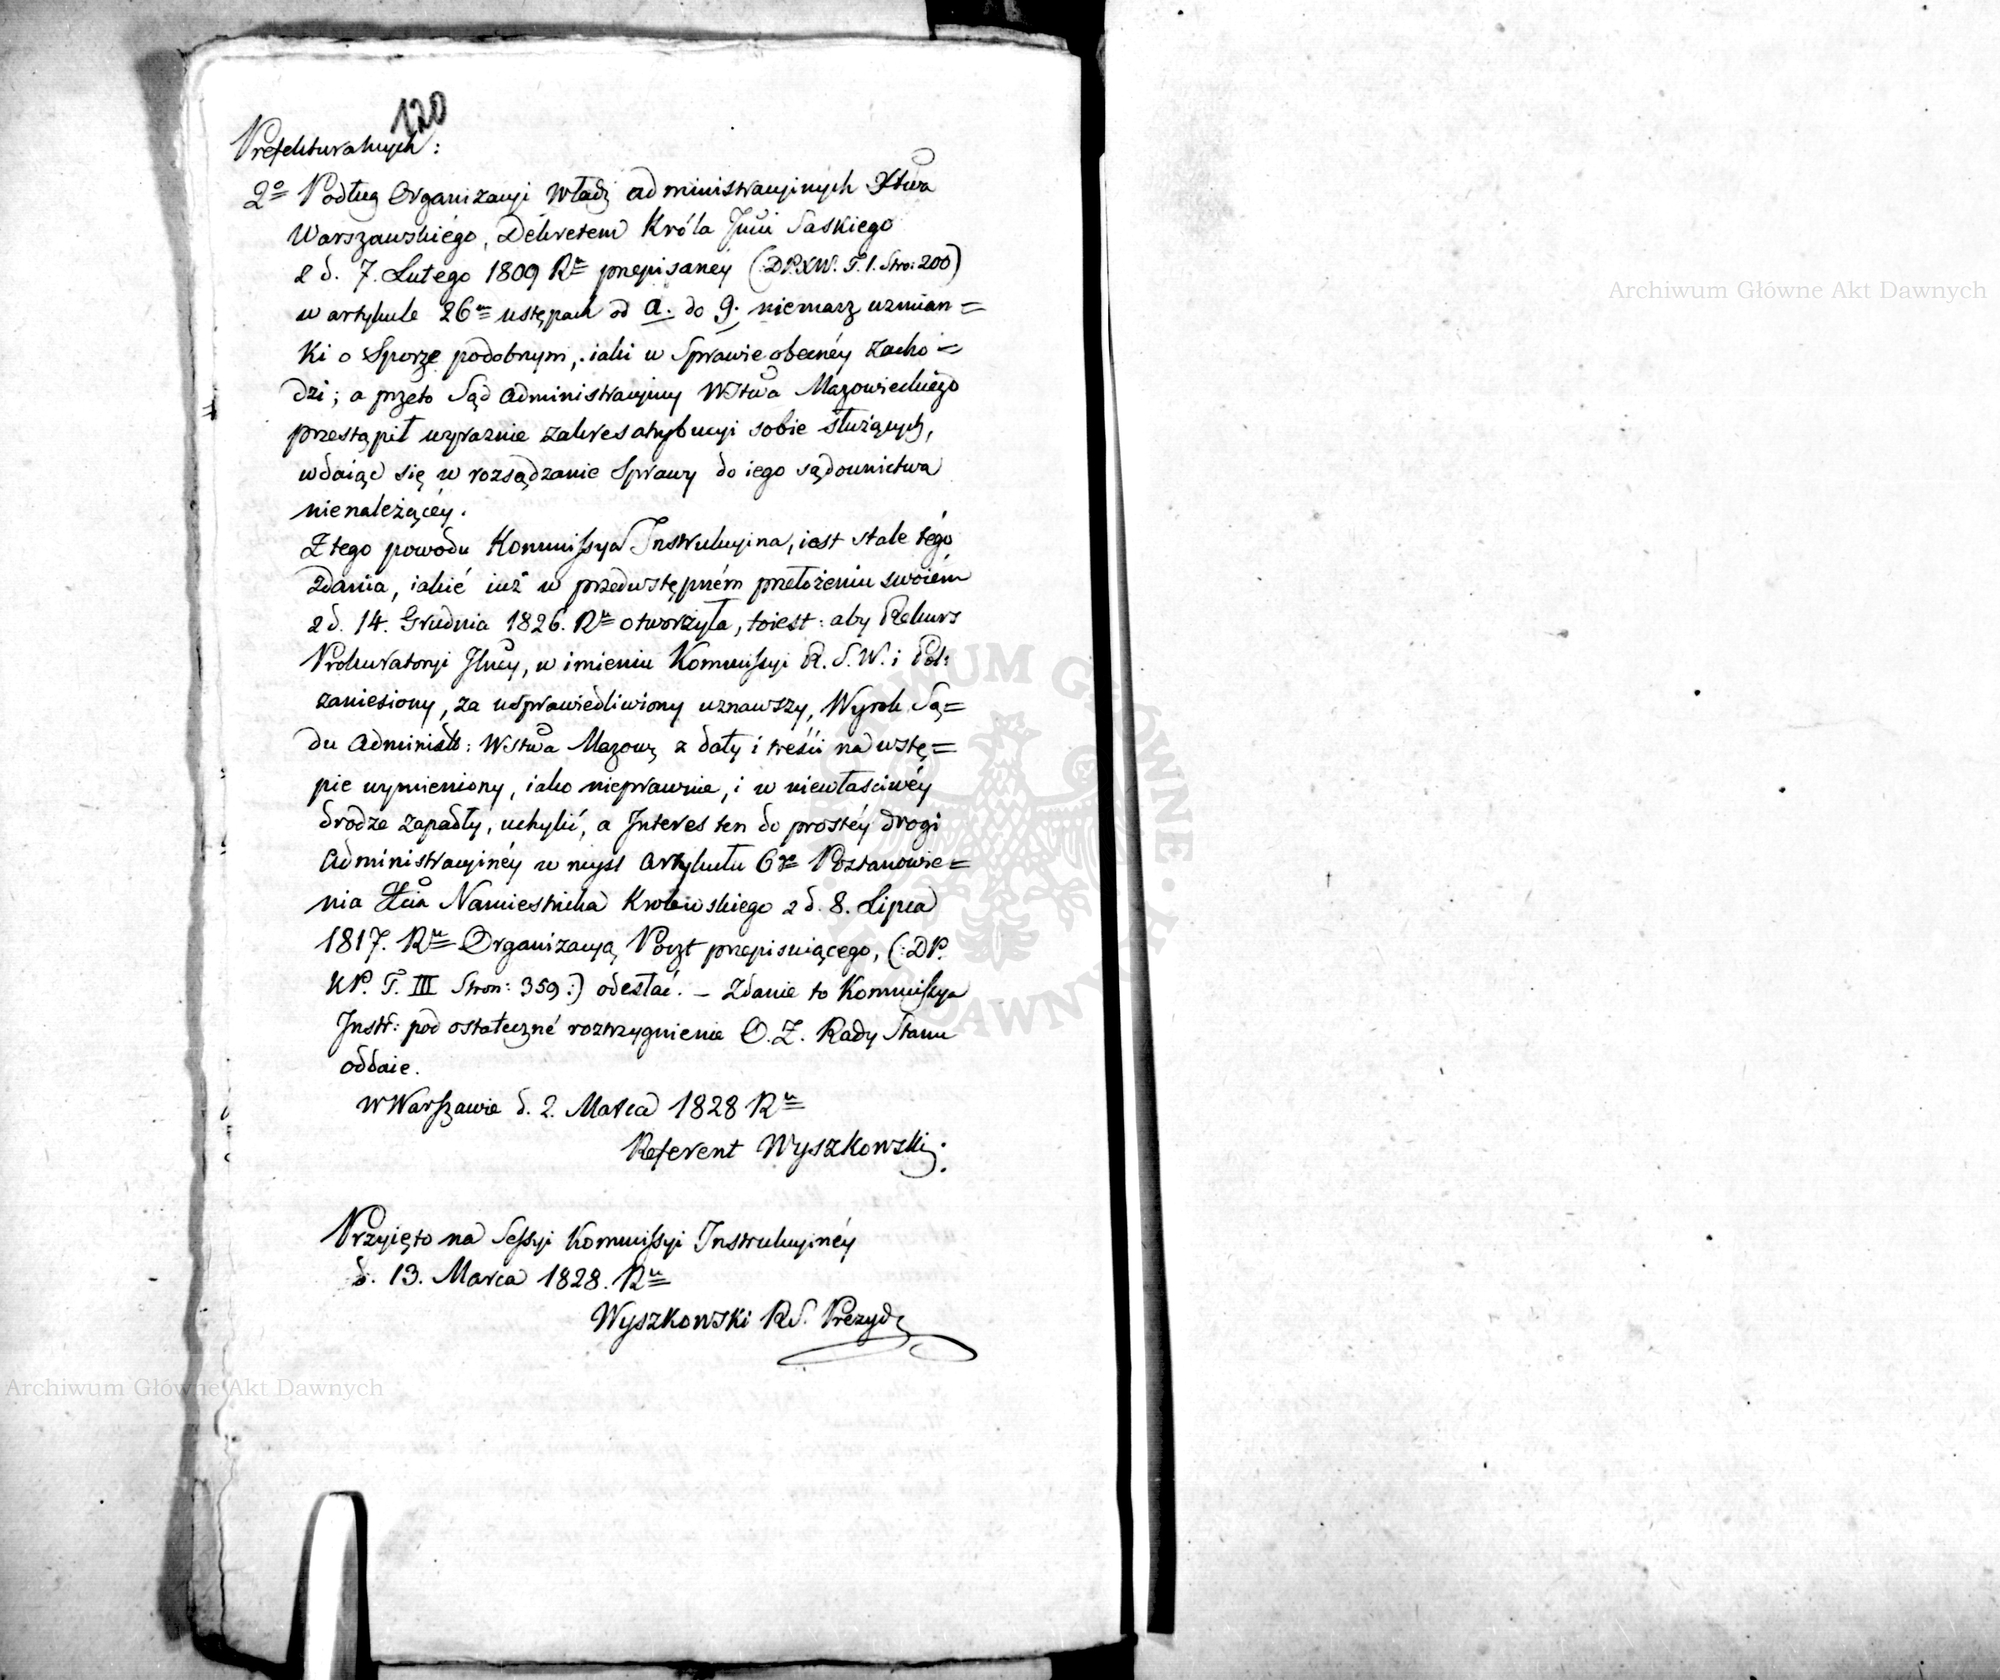 120
Prefekturalnych:
2o Podług Organizacyi Władz administracyinych Xtwa
Warszawskiégo, Dekretem Króla Jmci Saskiego
z d. 7. Lutego 1809 Ru przepisanéy (:DP.XW. T. 1. Stro: 200)
w artykule 26m ustępach od a. do g. niemasz wzmian=
ki o Sporze podobnym, iaki w Sprawie obecnéy zacho=
dzi; a przeto Sąd administracyiny Wstwa Mazowieckiego
przestąpił wyraznie zakres atrybucyi sobie służących,
wdaiąc się w rozsądzanie Sprawy do iego sądownictwa
nienależącéy.
Z tego powodu Kommissya Instrukcyina, iest stale tégo
zdania, iakié iuż w przedwstępném przełożeniu swoiém
z d. 14. Grudnia 1826. Ru otworzyła, toiest: aby Rekurs
Prokuratoryi Jlney, w imieniu Kommissyi R. S. W. i Pol:
zaniesiony, za usprawiedliwiony uznawszy, Wyrok Są=
du Administr: Wstwa Mazow: z daty i treści na wstę=
pie wymieniony, iako nieprawnie, i w niewłaściwéy
drodze zapadły, uchylić, a Interes ten do prostéy drogi
administracyinéy w mysl artykułu 6go Postanowie=
nia Xcia Namiestnika Krolewskiego z d. 8. Lipca
1817. Ru Organizacyą Poczt przepisuiącego, (:DP.
KP. T. III Stron: 359:) odesłać. – Zdanie to Kommissya
Instr: pod ostateczné roztrzygnienie O. Z. Rady Stanu
oddaie.
w Warszawie d. 2. Marca 1828 Ru
Referent Wyszkowski.
Przyięto na Sessyi Kommissyi Instrukcyinéy
d. 13. Marca 1828. Ru
Wyszkowski RS. Prezyd:
Archiwum Główne Akt Dawnych
Archiwum Główne Akt Dawnych
ARCHIWUM GŁÓWNE AKT DAWNYCH